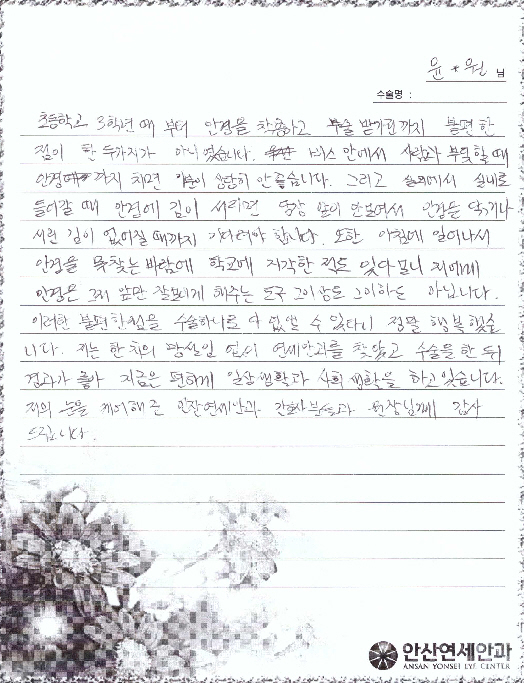 윤 * 원 님
수술명 :
초등학교 3학년 때 부터 안경을 착용하고 수술 받기전까지 불편한
점이 한 두가지가 아니었습니다. 버스 안에서 사람과 부딪힐때
안경 까지 치면 기분이 상당히 안좋습니다. 그리고 실외에서 실내로
들어갈 때 안경에 김이 서리면 당장 앞이 안보여서 안경을 닦거나
서린 김이 없어질 때까지 기다려야 합니다. 또한 아침에 일어나서
안경을 못찾는 바람에 학교에 지각한 적도 있다보니 저에게
안경은 그저 앞만 잘보이게 해주는 도구 그이상도 그이하도 아닙니다.
이러한 불편한점을 수술하나로 다 없앨 수 있다니 정말 행복했습
니다. 저는 한 치의 망설임 없이 연세안과를 찾았고 수술을 한 뒤
경과가 좋아 지금은 편하게 일상생활과 사회생활을 하고있습니다.
저의 눈을 케어해준 안산연세안과 간호사분들과 원장님께 감사
드립니다.
안산연세안과
ANSAN YONSEI EYE CENTER